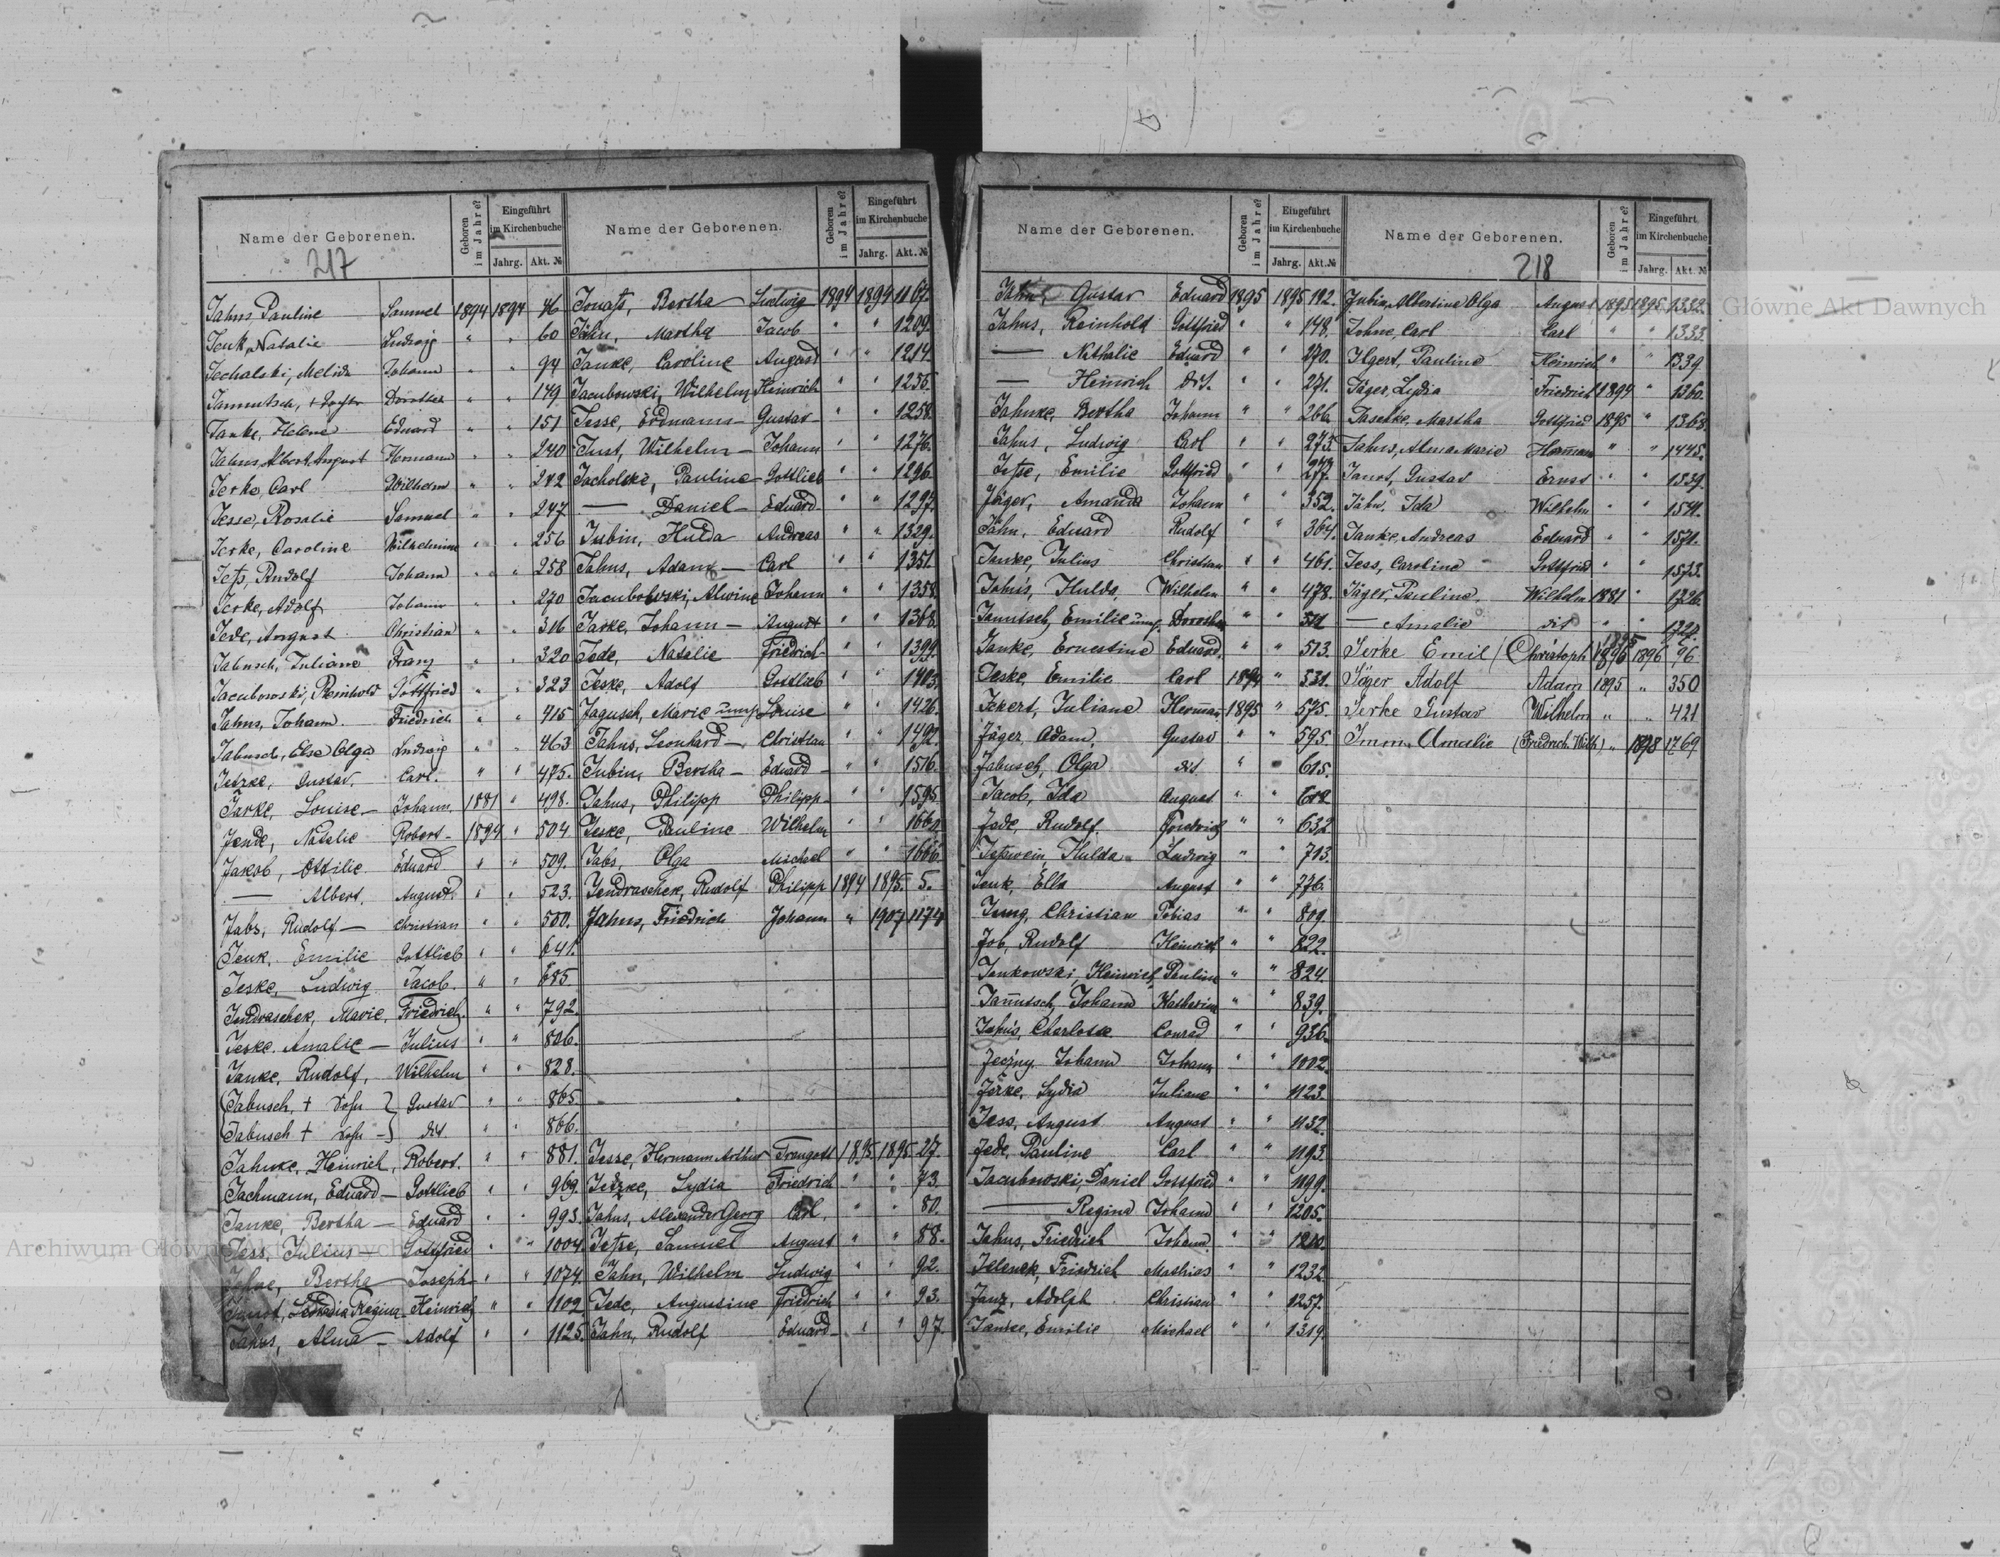 Name der Geborenen.
Geboren im Jahre?
Eingeführt im Kirchenbuche
Jahrg. Akt. №
217
Jahns, Pauline Samuel 1894 1894 46
Jenk, Natalie Ludwig " " 60
Jechalski, Melida Johann " " 94
Jannutsch, + Tochter Dorothea " " 149
Janke, Helene Eduard " " 151
Jahns, Albert August Hermann " " 240
Jerke, Carl Wilhelm " " 242
Jesse, Rosalie Samuel " " 247
Jerke, Caroline Wilhelmine " " 256
Jeß, Rudolf Johann " " 258
Jerke, Adolf Johann " " 270
Jede, August Christian " " 316
Jabusch, Juliane Franz " " 320
Jacubowski, Reinhold Gottfried " " 323
Jahns, Johann Friedrich " " 415
Jabusch, Else Olga Ludwig " " 463
Jetzke, Gustav Carl. " " 475.
Jarke, Louise – Johann. 1881 " 498.
Jende, Natalie Robert – 1894 " 504
Jakob, Ottilie Eduard " " 509.
— Albert, August. " " 523.
Jabs, Rudolf — Christian " " 500.
Jenk, Emilie Gottlieb " " 641.
Jeske, Ludwig Jacob. " " 685
Jendraschek, Marie, Friedrich. " " 792.
Jeske, Amalie – Julius " " 806.
Janke, Rudolf, Wilhelm " " 828.
Jabusch, + Sohn } Gustav " " 865.
Jabusch + Sohn – } dit " " 866.
Jahnke, Heinrich, Robert. " " 881.
Jachmann, Eduard – Gottlieb " " 969.
Janke, Bertha – Eduard " " 993.
Jess, Julius Gottfried " " 1004.
Johne, Bertha Joseph " " 1074.
Heinrich " " 1102
Jahns, Alma – Adolf " " 1125.
Name der Geborenen.
Geboren im Jahre?
Eingeführt im Kirchenbuche
Jahrg. Akt. №
Jonaß, Bertha Ludwig 1894 1894 1167.
Jähn, Martha Jacob " " 1209.
Janke, Caroline August " " 1214.
Jacubowski, Wilhelm Heinrich " " 1255.
Jesse, Edmann – Gustav – " " 1258.
Just, Wilhelm – Johann " " 1276.
Jacholcke, Pauline Gottlieb " " 1296.
— Daniel – Eduard " " 1297.
Jubin, Hulda Andreas " " 1329.
Jahns, Adam – Carl " " 1351.
Jacubowski, Alwine Johann " " 1358.
Jarke, Johann – August " " 1368.
Jede, Natalie Friedrich " " 1399.
Jeske, Adolf Gottlieb " " 1405.
Jagusch, Marie ump. Louise " " 1426.
Jahns, Leonhard – Christian " " 1492.
Jubin, Bertha – Eduard – " " 1516.
Jahns, Philipp Philipp – " " 1595
Jeske, Pauline Wilhelm " " 1660.
Jabs, Olga Michael " " 1666.
Jendraschek, Rudolf Philipp 1894 1895 5.
Jahns, Friedrich Johann " 1907 1174
Jesse, Hermann Arthur Traugott 1895 1895. 27.
Jetzke, Lydia Friedrich " " 73.
Jahns, Alexander Georg Carl. " " 80.
Jeße, Samuel August " " 88.
Jahn, Wilhelm Ludwig " " 92.
Jede, Augustine Friedrich " " 93.
Jahn, Rudolf Eduard – " " 97.
Name der Geborenen.
Geboren im Jahre?
Eingeführt im Kirchenbuche
Jahrg. Akt. №
Jahn, Gustav Eduard 1895 1895 112.
Jahns, Reinhold Gottfried " " 178.
— Nathalie Eduard " " 270.
— Heinrich dit. " " 271.
Jahnke, Bertha Johann " " 266.
Jahns, Ludwig Carl " " 273.
Jeße, Emilie Gottfried " " 277.
Jäger, Amanda Johann " " 352.
Jähn, Eduard Rudolf " " 364.
Janke, Julius Christian " " 461.
Jahns, Hulda, Wilhelm " " 478.
Jannutsch, Emilie ump. Dorothea " " 511.
Janke, Ernestine Eduard. " " 513.
Jeske, Emilie Carl 1894 " 531.
Jckert, Juliane Herman 1895 " 575.
Jäger, Adam. Gustav " " 595.
Jabusch, Olga dit " " 615.
Jacob, Ida August " " 618.
Jade, Rudolf Friedrich " " 632
Hulda Ludwig " " 713.
Jenk, Ella August " " 776.
Jung, Christian Tobias " " 809.
Job, Rudolf Heinrich " " 822.
Jankowski, Heinrich, Pauline " " 824.
Jannutsch, Johann Katherine " " 839.
Jahns, Charlotte Conrad " " 936.
Jeczny, Johann Johann " " 1002.
Jerke, Lydia Juliane " " 1123.
Jess, August August " " 1132.
Jede, Pauline Carl " " 1193.
Jacubowski, Daniel Gottfried " " 1199.
— Regine Johann " " 1205.
Jahns, Friedrich Johann " " 1210.
Jelenek, Friedrich Mathias " " 1232
Janz, Adolph Christian " " 1257.
Janke, Emilie Michael " " 1319.
Name der Geborenen.
Geboren im Jahre?
Eingeführt im Kirchenbuche
Jahrg. Akt. №
218
Jubin, Albertine Olga August 1895 1895 1332.
Johne, Carl Carl " " 1333.
Jlgert, Pauline Heinrich " " 1339
Jäger, Lydia Friedrich 1894 " 1360.
Jaschke, Martha Gottfried 1895 " 1368
Jahns, Alma Marie Hermann " " 1445.
Janot, Gustav Ernst " " 1539.
Jähn, Ida Wilhelm " " 1541.
Janke, Andreas Eduard " " 1571.
Jess, Caroline Gottfried " " 1573.
Jäger, Pauline. Wilhelm 1881 " 1726.
— Amalie dit " " 1727.
Jerke Emil (Christoph) 1895 1896 96
Jäger Adolf Adam 1895 " 350
Jerke Gustav Wilhelm " " 421
Jmm, Amalie (Friedrich Wilh.) " 1898 1769
Archiwum Główne Akt Dawnych
Główne Akt Dawnych